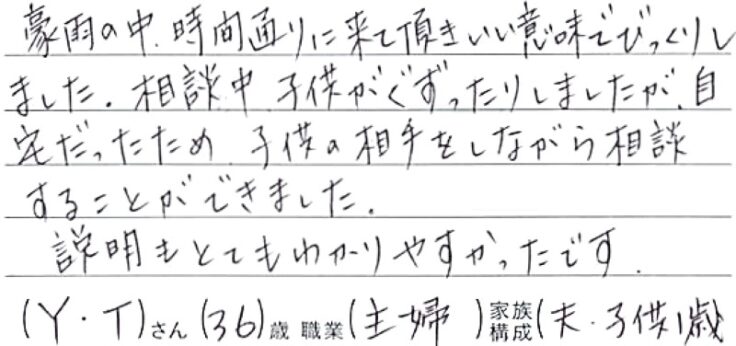 豪雨の中、時間通りに来て頂きいい意味でびっくりし
ました。相談中 子供がぐずったりしましたが、自
宅だったため 子供の相手をしながら相談
することができました。
説明もとてもわかりやすかったです。
(Y・T)さん(36)歳 職業(主婦)家族構成(夫・子供1歳